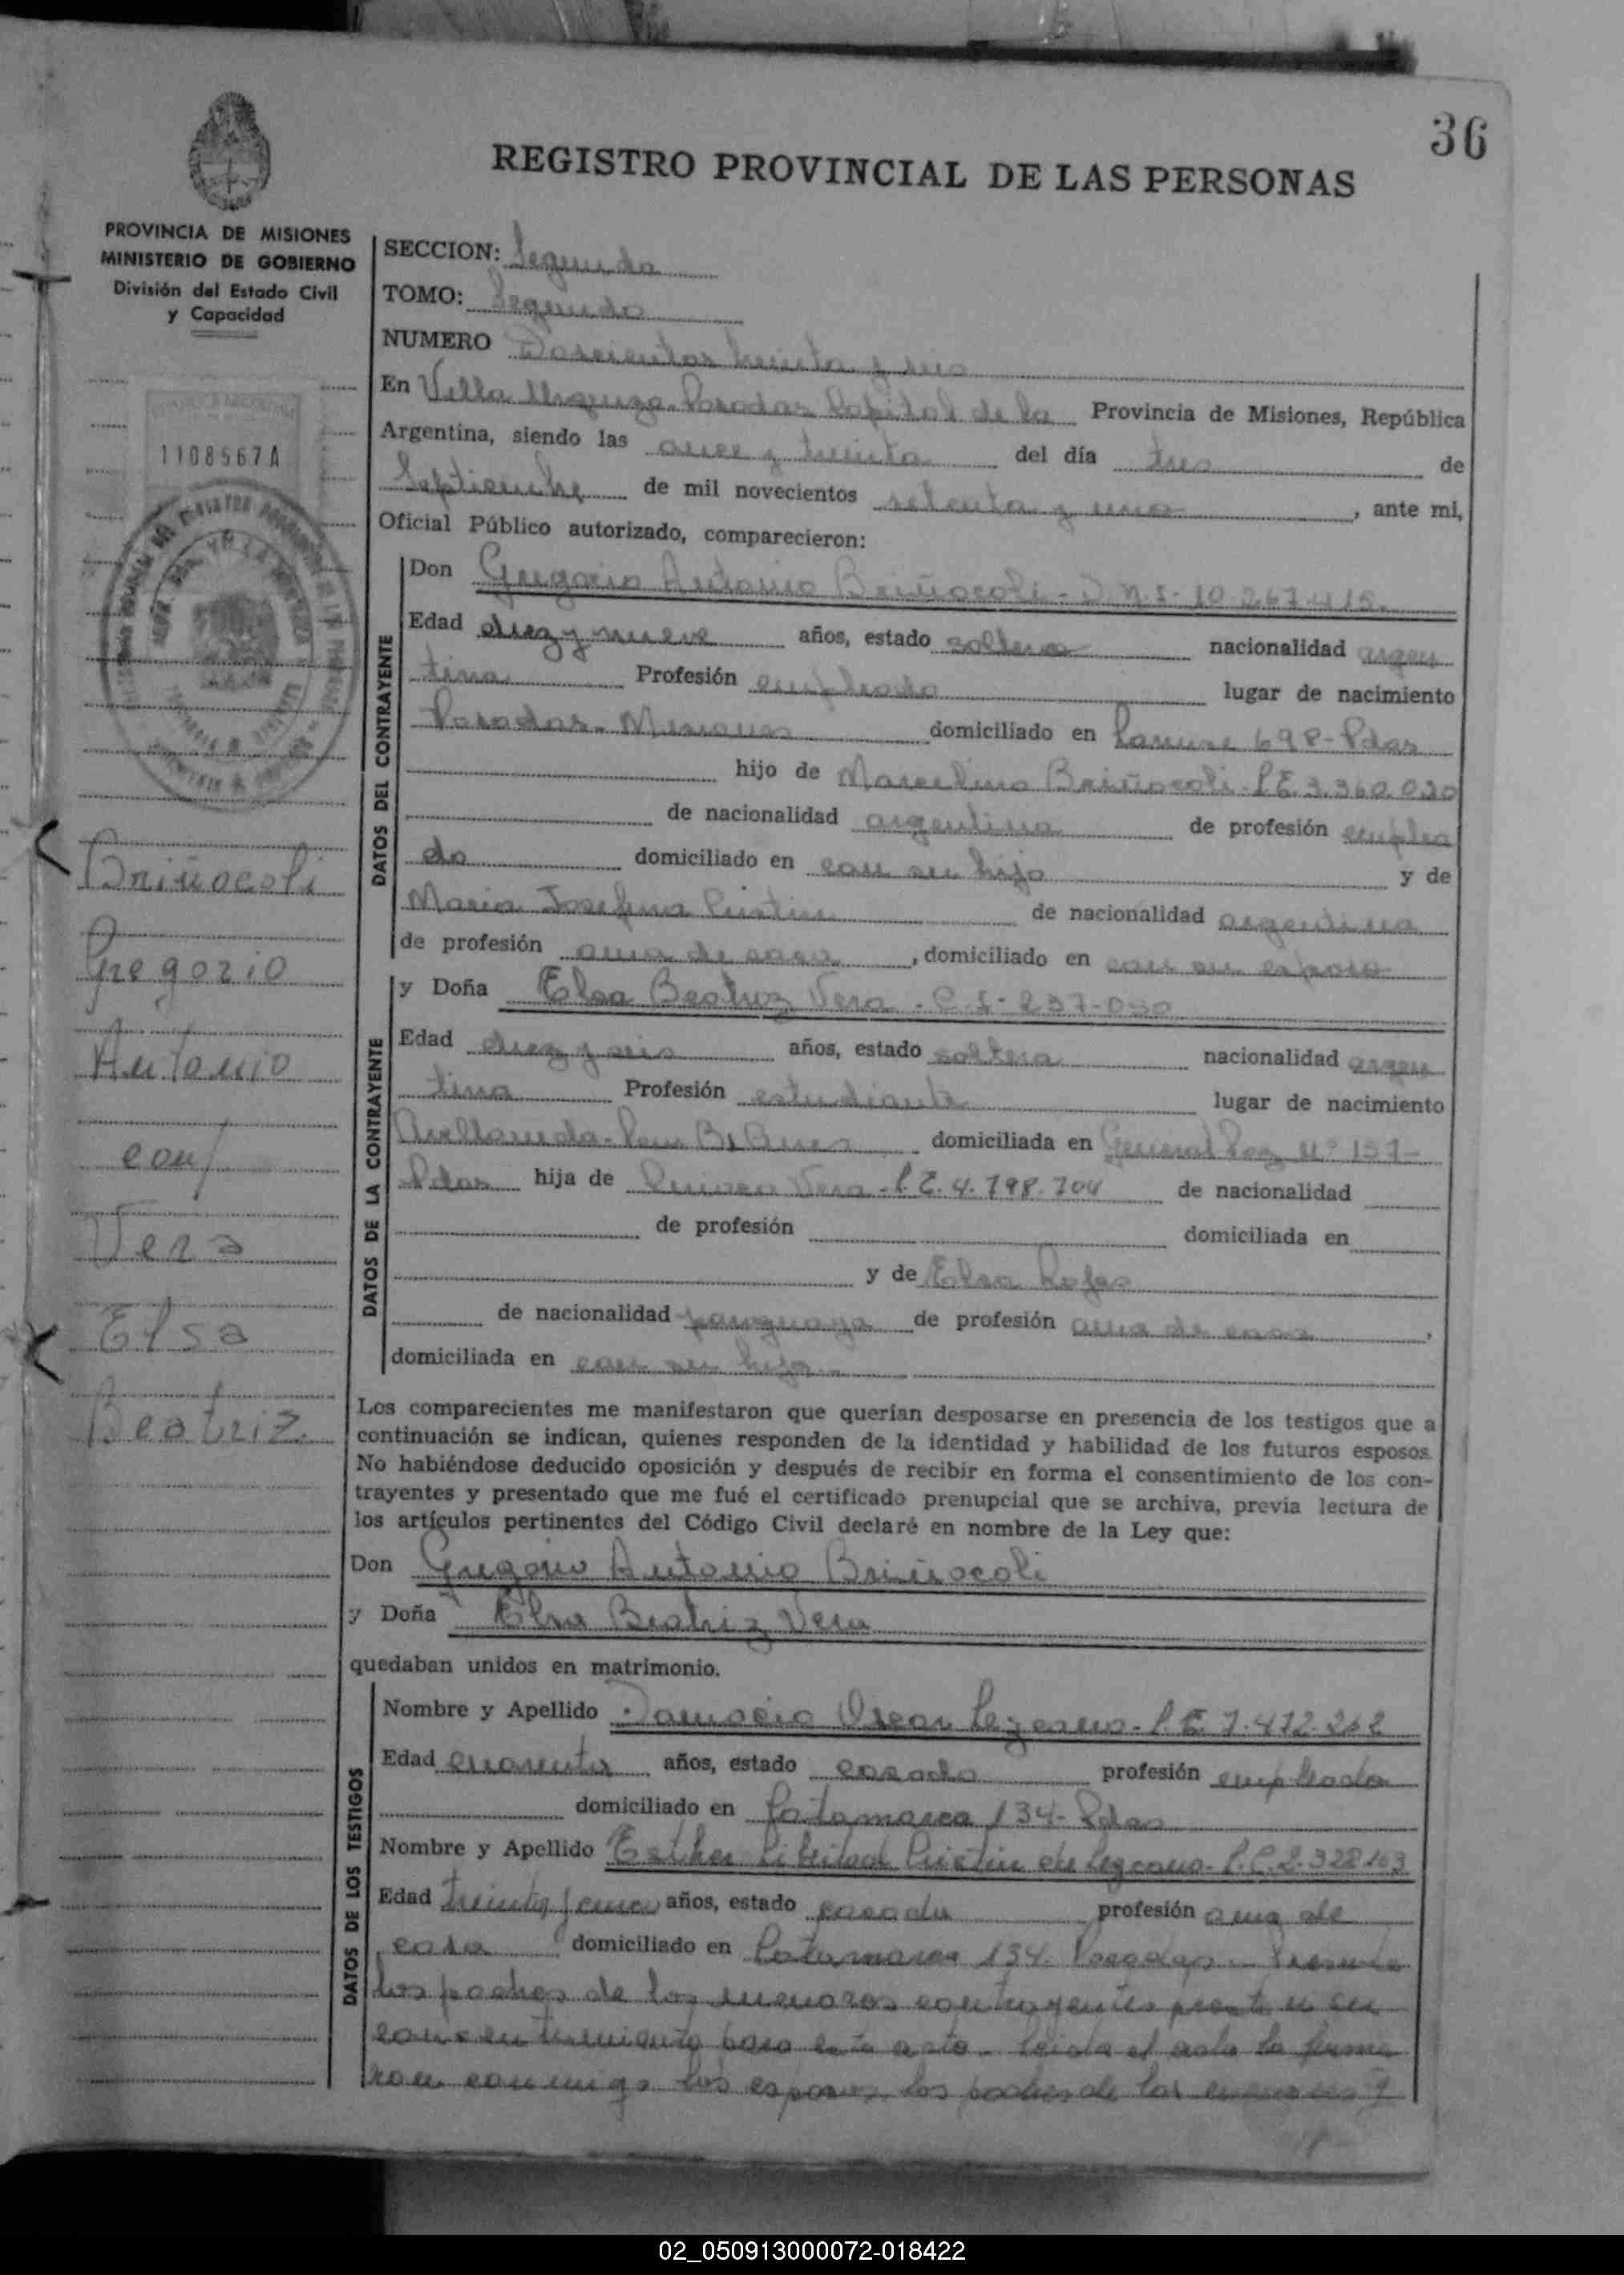 36
REGISTRO PROVINCIAL DE LAS PERSONAS
PROVINCIA DE MISIONES
MINISTERIO DE GOBIERNO
División del Estado Civil
y Capacidad
1108567A
Briñocoli
Gregorio
Antonio
con/
Vera
Elsa
Beatriz.
SECCION: Segunda
TOMO: Segundo
NUMERO Doscientos treinta y seis
En Villa Urquiza Posadas Capital de la Provincia de Misiones, República
Argentina, siendo las once y treinta del día tres de
Septiembre de mil novecientos setenta y uno, ante mi,
Oficial Público autorizado, comparecieron:
DATOS DEL CONTRAYENTE
Don Gregorio Antonio Briñocoli - D.N.I. 10.267.415.
Edad diez y nueve años, estado soltero nacionalidad argen
tina Profesión empleado lugar de nacimiento
Posadas - Misiones domiciliado en 698 - Pdas
hijo de Marcelino Briñocoli - L.E. 3.360.020
de nacionalidad argentina de profesión emplea
do domiciliado en con su hijo y de
Maria Josefina de nacionalidad argentina
de profesión ama de casa, domiciliado en con su esposo
DATOS DE LA CONTRAYENTE
y Doña Elsa Beatriz Vera - C.I. 237.030
Edad diez y seis años, estado soltera nacionalidad argen
tina Profesión estudiante lugar de nacimiento
Avellaneda - Bs Aires domiciliada en General Paz Nº 157-
Pdas hija de Vera - L.E. 4.798.704 de nacionalidad
de profesión domiciliada en
y de Elsa Rojas
de nacionalidad paraguaya de profesión ama de casa,
domiciliada en con su hija
Los comparecientes me manifestaron que querían desposarse en presencia de los testigos que a
continuación se indican, quienes responden de la identidad y habilidad de los futuros esposos.
No habiéndose deducido oposición y después de recibir en forma el consentimiento de los con-
trayentes y presentado que me fué el certificado prenupcial que se archiva, previa lectura de
los artículos pertinentes del Código Civil declaré en nombre de la Ley que:
Don Gregorio Antonio Briñocoli
y Doña Elsa Beatriz Vera
quedaban unidos en matrimonio.
DATOS DE LOS TESTIGOS
Nombre y Apellido Oscar Lezcano - L.E. 7.472.262
Edad cuarenta años, estado casado profesión empleado
domiciliado en Catamarca 134 - Pdas
Nombre y Apellido Esther Libertad de Lezcano - L.C. 2.328.163
Edad treinta y cinco años, estado casada profesión ama de
casa domiciliado en Catamarca 134. Posadas. Presente
los padres de los menores contrayentes prestan su
consentimiento para este acto. Leida el acta la firma
ron conmigo los esposos, los padres de los menores y
02_050913000072-018422